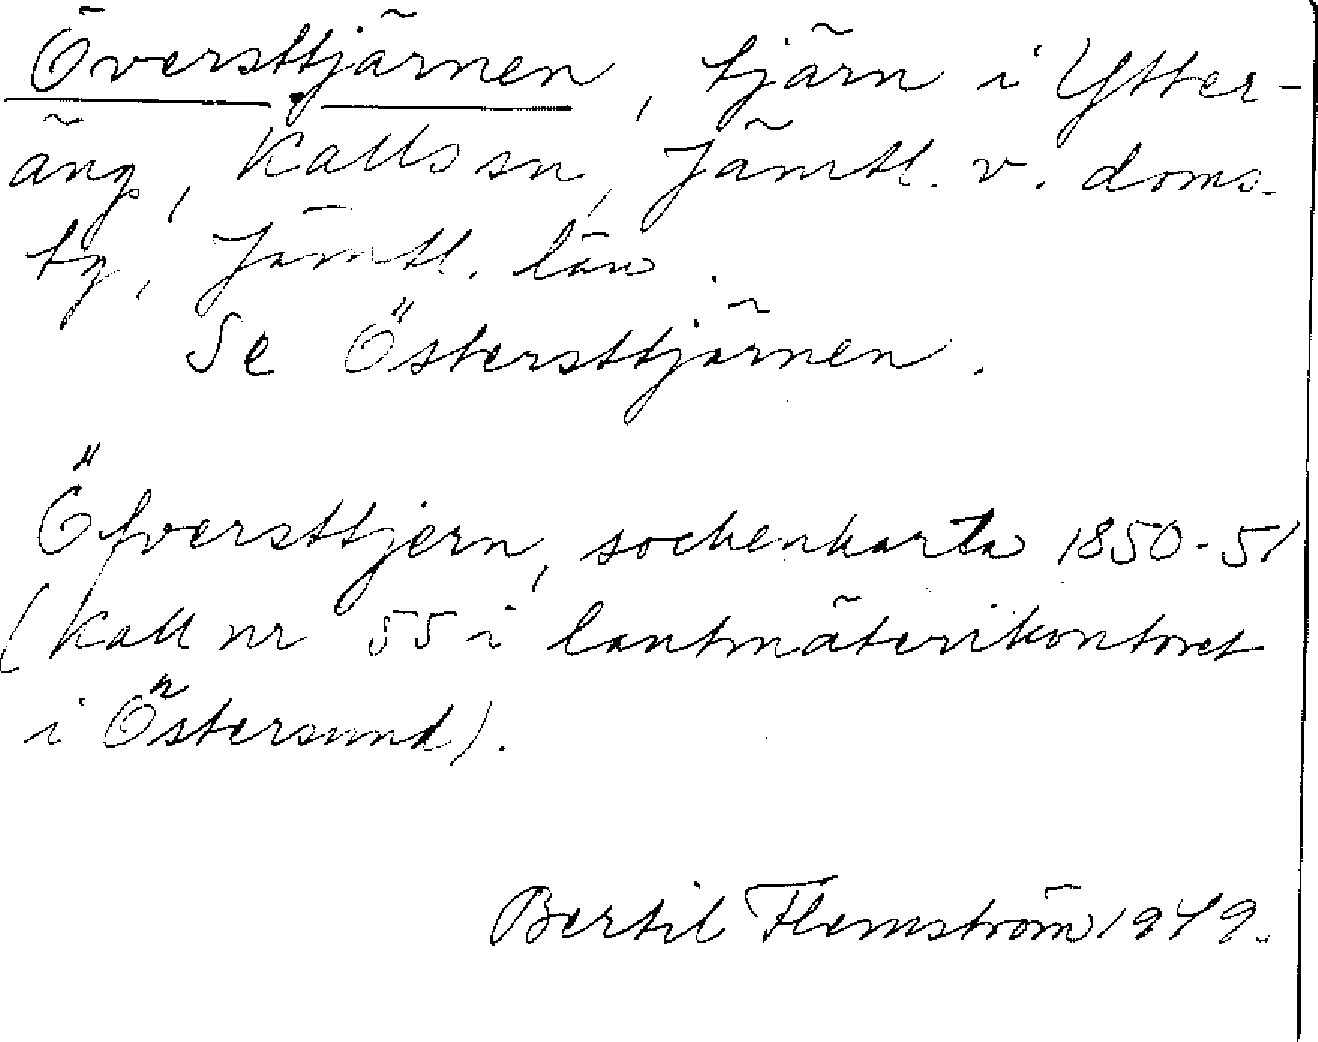 Översttjärnen, tjärn i Ytter-
äng, Kalls sn, Jämtl. v. doms-
tg, Jämtl. län.
Se Östersttjärnen.
Öfversttjern, sockenkarta 1850-51
(Kall nr 55 i lantmäterikontoret
i Östersund).
Bertil Flemström 1949.